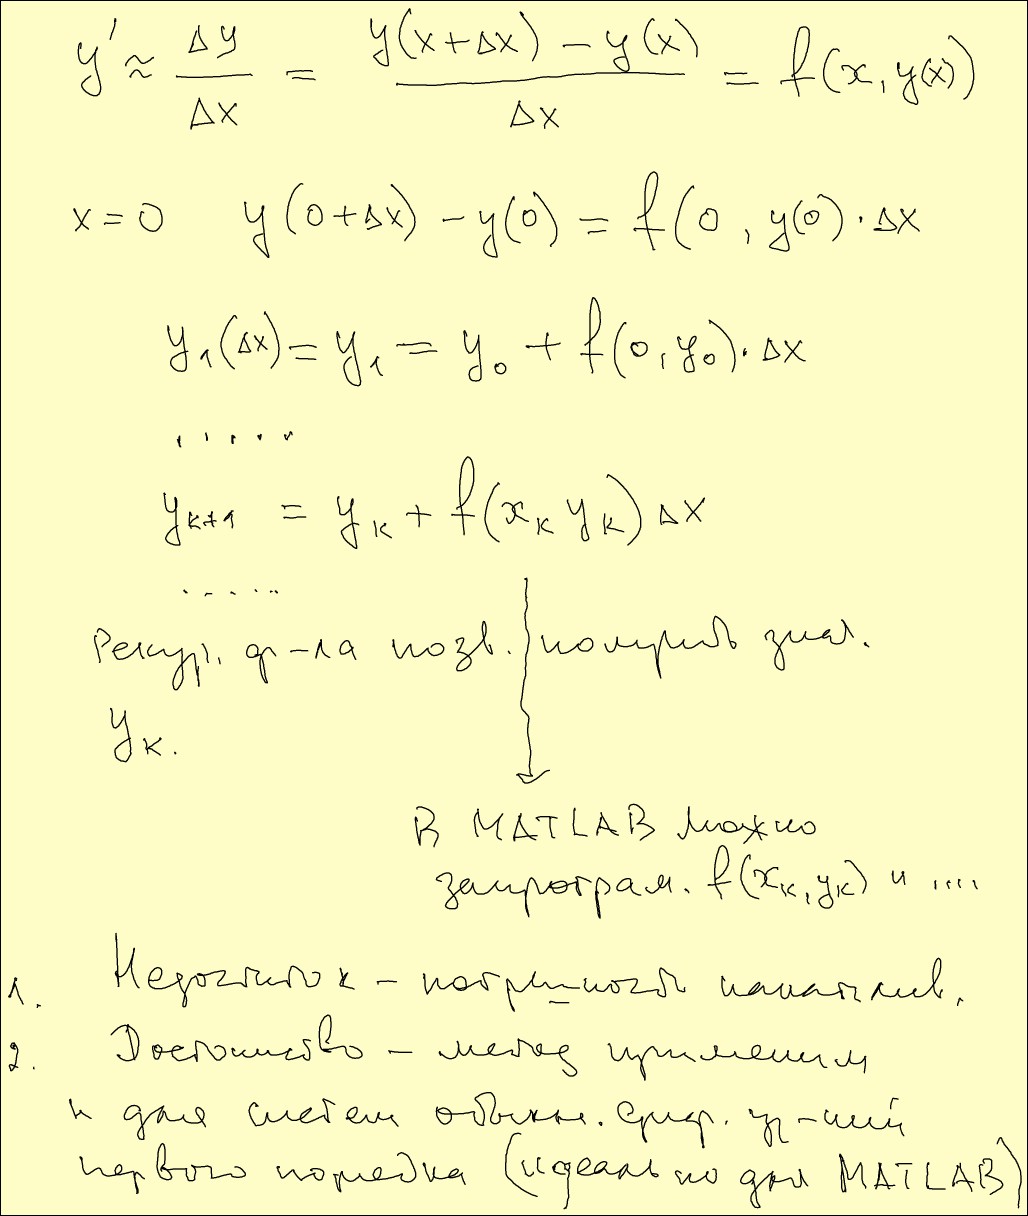 y' ≈ Δy/Δx = (y(x+Δx) − y(x))/Δx = f(x, y(x))
x = 0   y(0+Δx) − y(0) = f(0, y(0)·Δx
y₁(Δx) = y₁ = y₀ + f(0, y₀)·Δx
.....
yₖ₊₁ = yₖ + f(xₖ yₖ)Δx
.....
Рекур. ф-ла позв. получить знач.
yₖ.
В MATLAB можно
запрограм. f(xₖ, yₖ) и ....
1. Недостаток – погрешность накаплив.
2. Достоинство – метод применим
и для систем обыкн. диф. ур-ний
первого порядка (идеально для MATLAB)